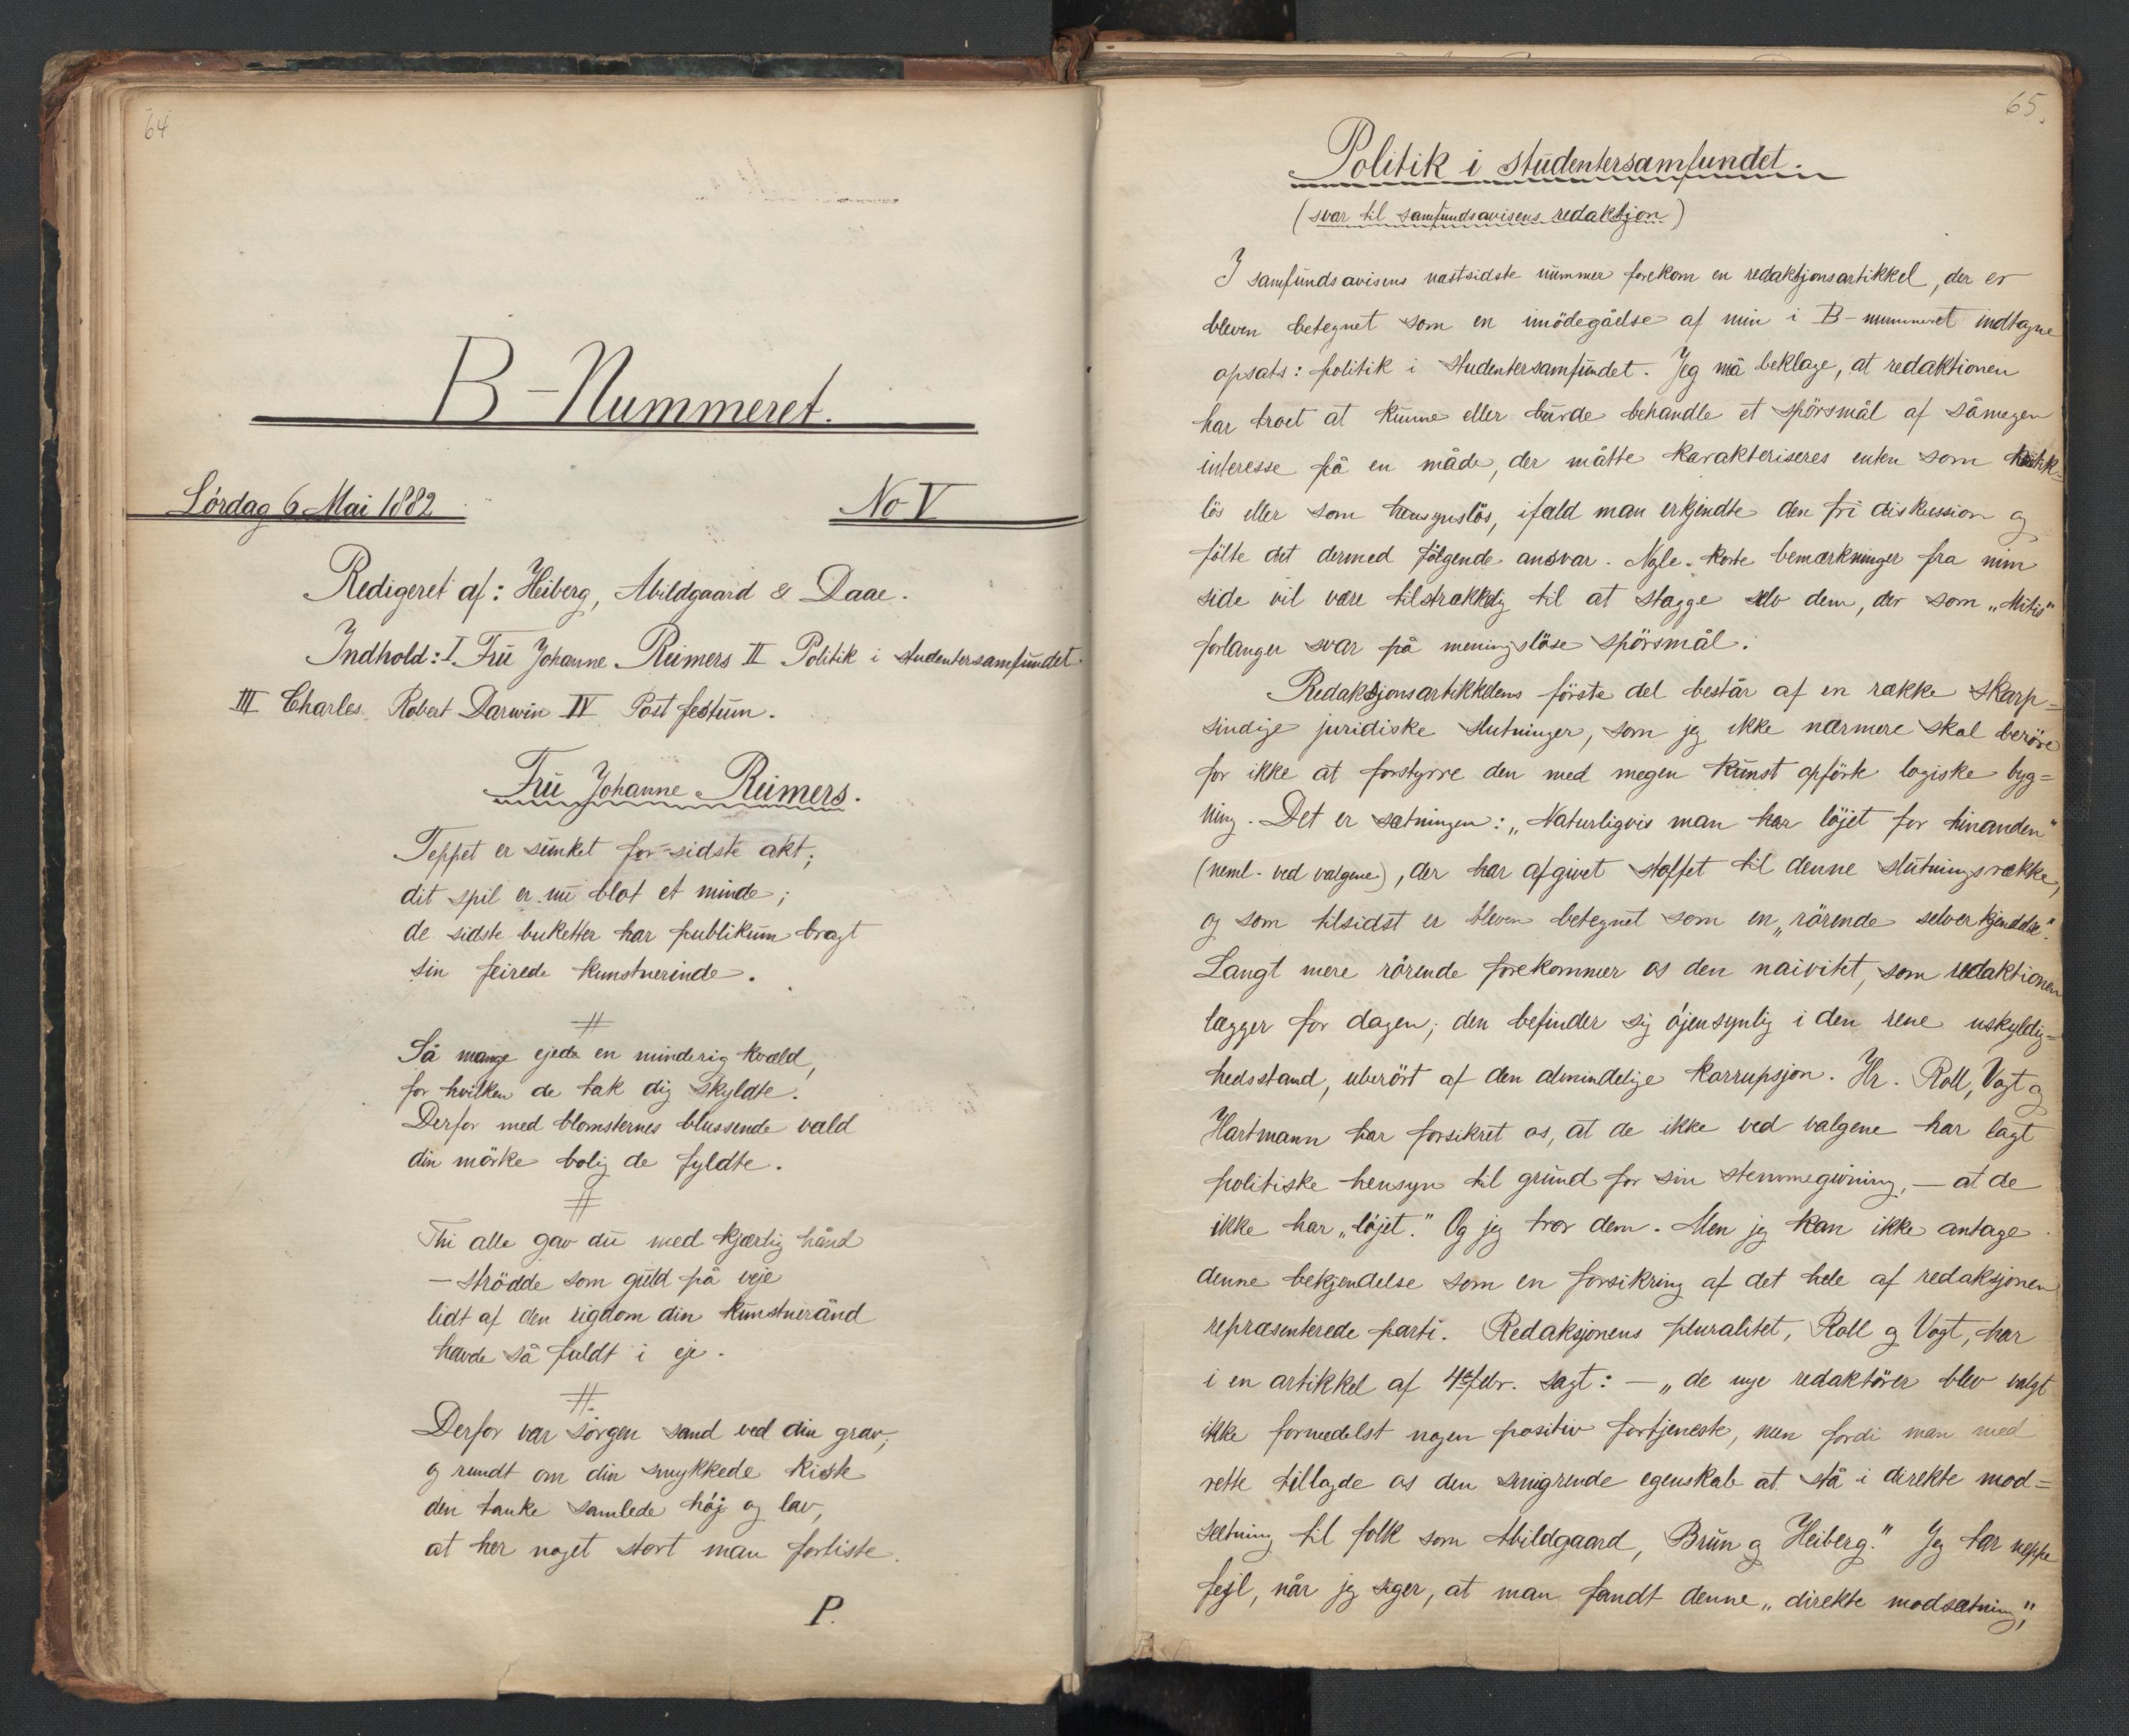 64
B-Nummeret.
Lördag 6 Mai 1882
No V
Redigeret af: Heiberg, Abildgaard & Daae.
Indhold: I. Fru Johanne Reimers II Politik i studentersamfundet
III Charles Robert Darwin IV Post festum.
Fru Johanne Reimers.
Teppet er sunket for sidste akt;
dit spil er nu blot et minde;
de sidste buketter har publikum bragt
sin feirede kunstnerinde.
#
Så mange ejede en minderig kvæld,
for hvilken de tak dig skyldte.
Derfor med blomsternes blussende væld
din mörke bolig de fyldte.
#
Thi alle gav du med kjærlig hånd
– strödde som guld på veje
lidt af den rigdom din kunstnerånd
havde så fuldt i eje.
#
Derfor var sorgen sand ved din grav;
og rundt om din smykkede kiste
den tanke samlede höj og lav,
at her noget stort man forliste.
P.
65.
Politik i studentersamfundet.
(svar til samfundsavisens redaktjon)
I samfundsavisens næstsidste nummer forekom en redaktjonsartikkel, der er
bleven betegnet som en imödegåelse af min i B-nummeret indtagne
opsats: politik i studentersamfundet. Jeg må beklage, at redaktionen
har troet at kunne eller burde behandle et spörsmål af såmegen
interesse på en måde, der måtte karakteriseres enten som kritik=
lös eller som hensynslös, ifald man erkjendte den fri diskussion og
fölte det dermed fölgende ansvar. Nogle korte bemærkninger fra min
side vil være tilstrækkelig til at stagge selv dem, der som „Mitis"
forlanger svar på meningslöse spörsmål.
Redaktjonsartikkelens förste del består af en række skarp=
sindige juridiske slutninger, som jeg ikke nærmere skal beröre
for ikke at forstyrre den med megen kunst opförte logiske byg=
ning. Det er sætningen: „Naturligvis man har löjet for hinanden"
(neml. ved valgene), der har afgivet stoffet til denne slutningsrække,
og som tilsidst er bleven betegnet som en „rörende selverkjendelse".
Langt mere rörende forekommer os den naivitet, som redaktionen
lægger for dagen; den befinder sig öjensynlig i den rene uskyldig=
hedsstand, uberört af den almindelige korrupsjon. Hr. Roll, Vogt og
Hartmann har forsikret os, at de ikke ved valgene har lagt
politiske hensyn til grund for sin stemmegivning, – at de
ikke har „löjet." Og jeg tror dem. Men jeg kan ikke antage
denne bekjendelse som en forsikring af det hele af redaksjonen
repræsenterede parti. Redaksjonens pluralitet, Roll og Vogt, har
i en artikkel af 4de febr. sagt: – „de nye redaktörer blev valgt
ikke formedelst nogen positiv fortjeneste, men fordi man med
rette tillagde os den smigrende egenskab at stå i direkte mod=
sætning til folk som Abildgaard, Brun og Heiberg." Jeg tar neppe
fejl, når jeg siger, at man fandt denne „direkte modsætning",